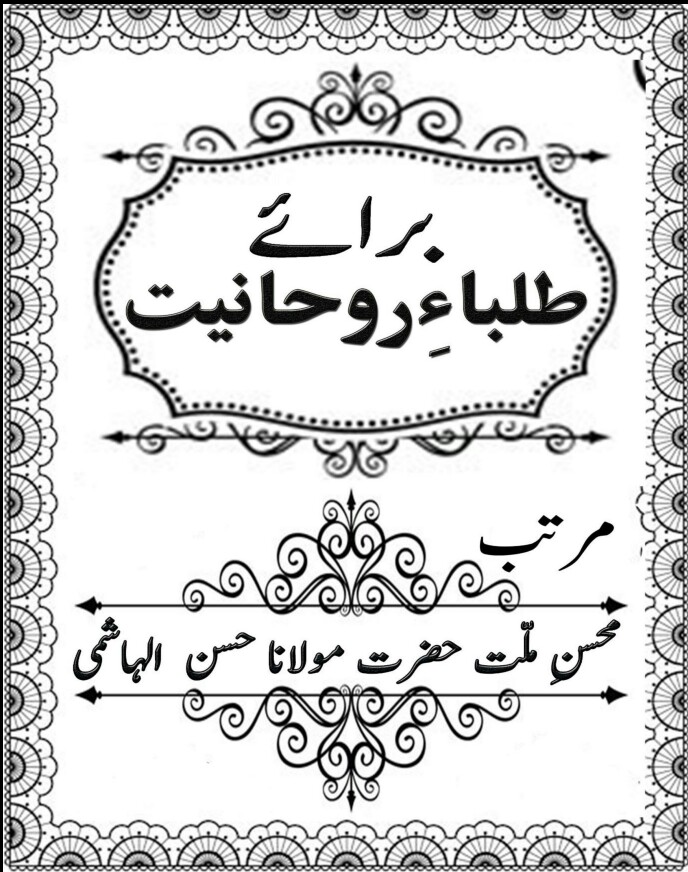 برائے
طلباءِ روحانیت
مرتب
محسنِ ملّت حضرت مولانا حسن الہاشمی